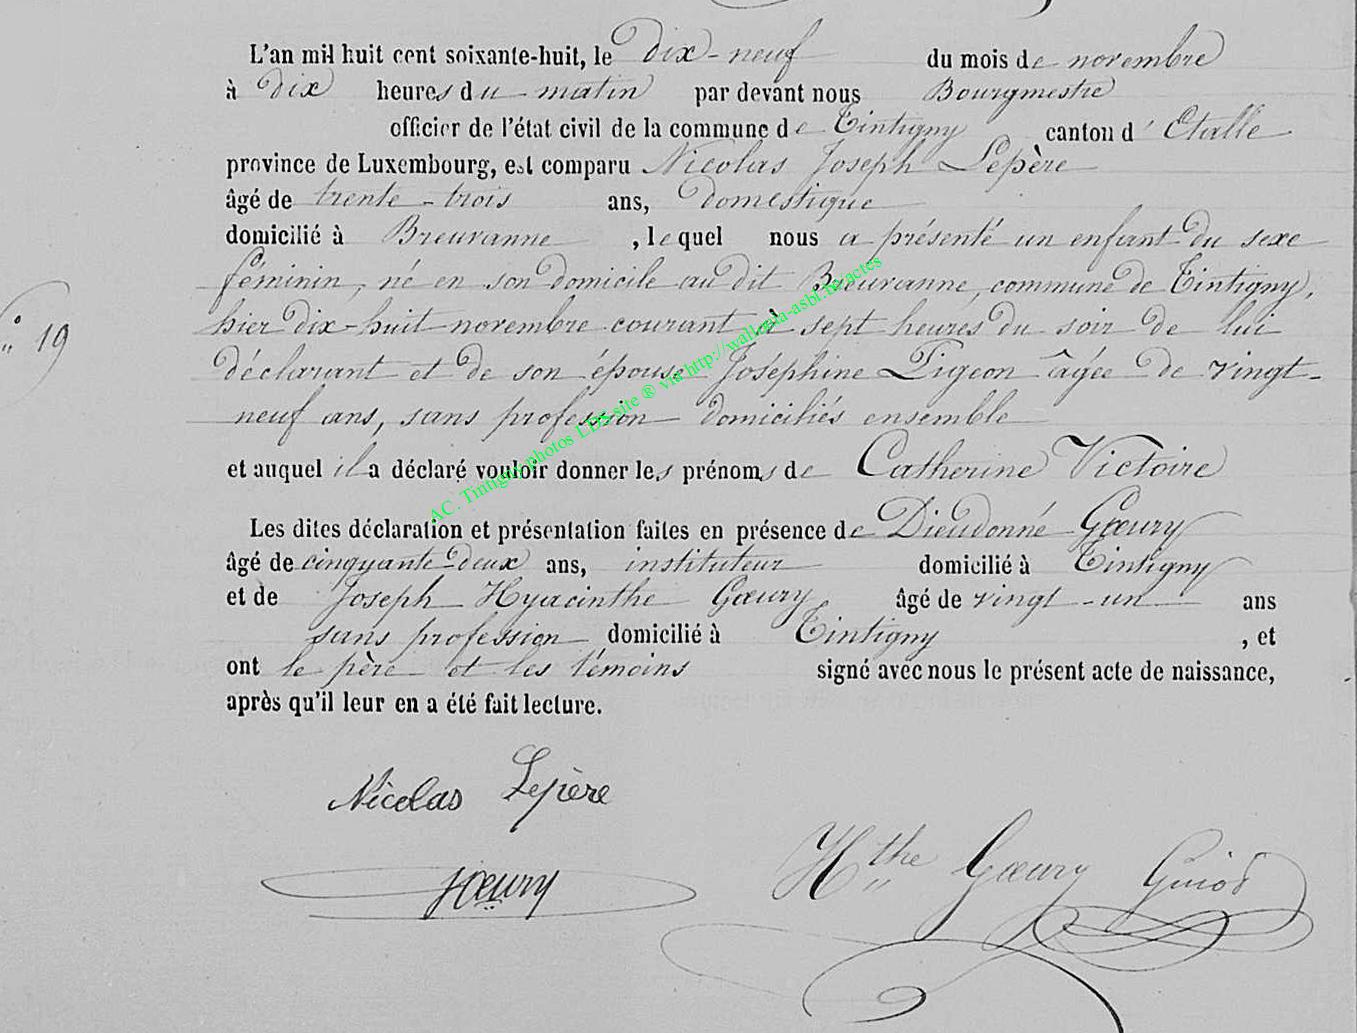 L'an mil huit cent soixante-huit, le dix-neuf du mois de novembre
à dix heures du matin par devant nous Bourgmestre
officier de l'état civil de la commune de Tintigny canton d'Etalle
province de Luxembourg, est comparu Nicolas Joseph Lepère
âgé de trente-trois ans, domestique
domicilié à Breuvanne, lequel nous a présenté un enfant du sexe
féminin, né en son domicile au dit Breuvanne, commune de Tintigny,
hier dix-huit novembre courant à sept heures du soir de lui
N° 19
déclarant et de son épouse Joséphine Pigeon âgée de vingt-
neuf ans, sans profession domiciliés ensemble
et auquel il a déclaré vouloir donner les prénoms de Catherine Victoire
Les dites déclaration et présentation faites en présence de Dieudonné Gœury
âgé de cinquante-deux ans, instituteur domicilié à Tintigny
et de Joseph Hyacinthe Gœury âgé de vingt-un ans
sans profession domicilié à Tintigny, et
ont le père et les témoins signé avec nous le présent acte de naissance,
après qu'il leur en a été fait lecture.
Nicolas Lepère
Gœury
Hthe Gœury Guiot
AC. Tintigny photos LDS site ® via http://wallonia-asbl.be/actes